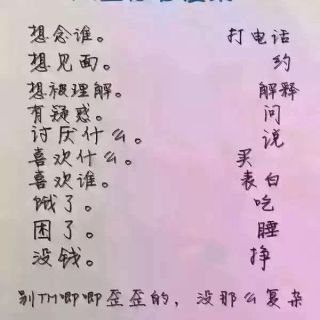 想念谁。 打电话
想见面。 约
想被理解。 解释
有疑惑。 问
讨厌什么。 说
喜欢什么。 买
喜欢谁。 表白
饿了。 吃
困了。 睡
没钱。 挣
别TM唧唧歪歪的，没那么复杂